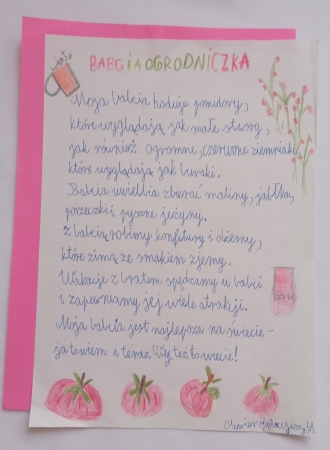 BABCIA OGRODNICZKA
Moja babcia hoduje pomidory,
które wyglądają jak małe stwory,
jak również ogromne, czerwone ziemniaki,
które wyglądają jak buraki.
Babcia uwielbia zbierać maliny, jabłka,
porzeczki i pyszne jeżyny.
Z babcią robimy konfitury i dżemy,
które zimą ze smakiem zjemy.
Wakacje z bratem spędzamy u babci
i zapewniamy jej wiele atrakcji.
Moja babcia jest najlepsza na świecie -
ja to wiem i teraz Wy też to wiecie!